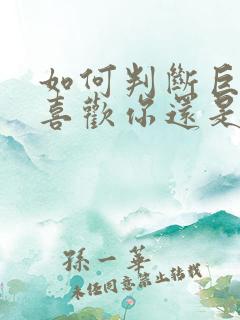 如何判斷巨
喜歡你還是
孫一華
未任同意禁止轉載